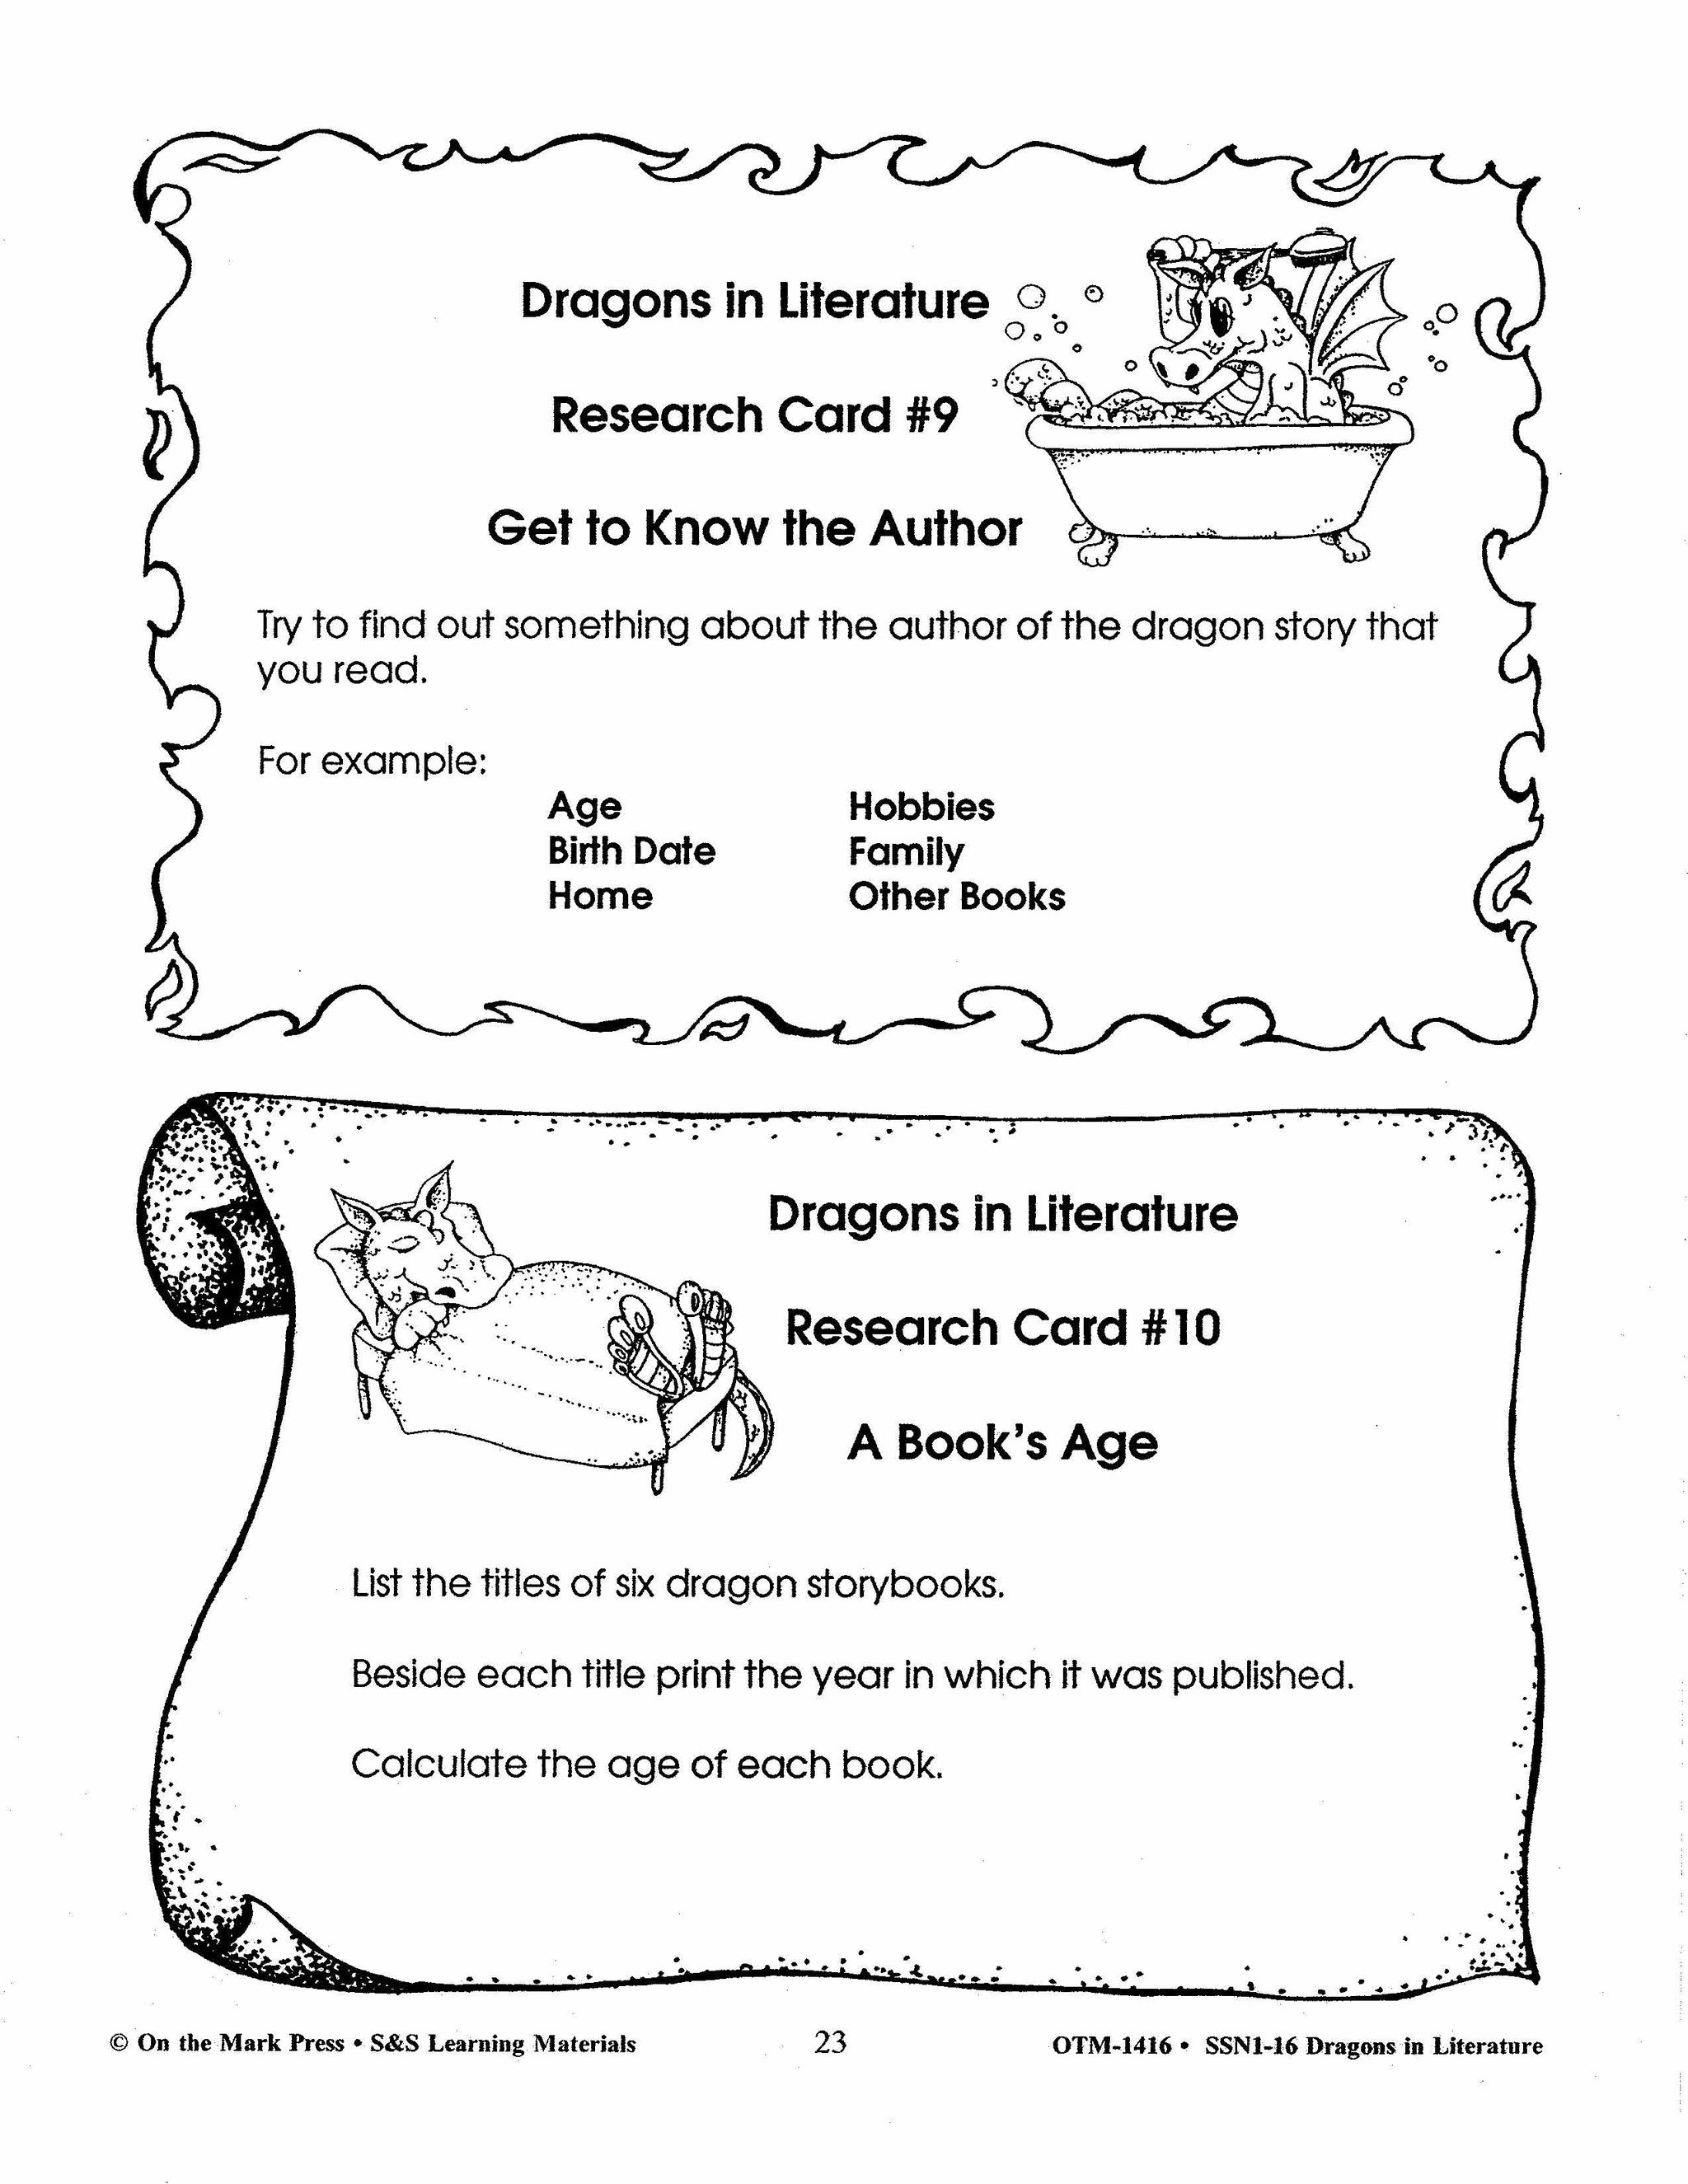 Dragons in Literature
Research Card #9
Get to Know the Author
Try to find out something about the author of the dragon story that
you read.
For example:
Age Hobbies
Birth Date Family
Home Other Books
Dragons in Literature
Research Card #10
A Book's Age
List the titles of six dragon storybooks.
Beside each title print the year in which it was published.
Calculate the age of each book.
© On the Mark Press • S&S Learning Materials 23 OTM-1416 • SSN1-16 Dragons in Literature